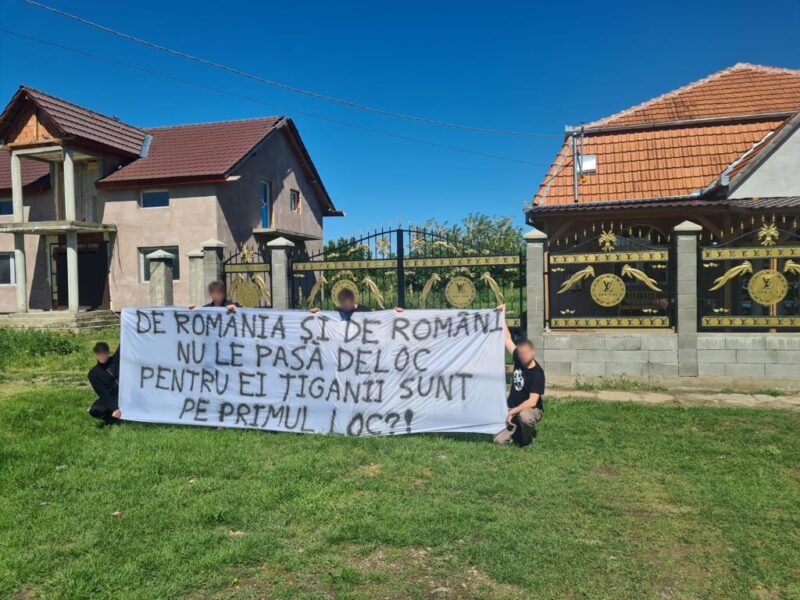 DE ROMÂNIA ȘI DE ROMÂNI
NU LE PASĂ DELOC
PENTRU EI ȚIGANII SUNT
PE PRIMUL LOC?!